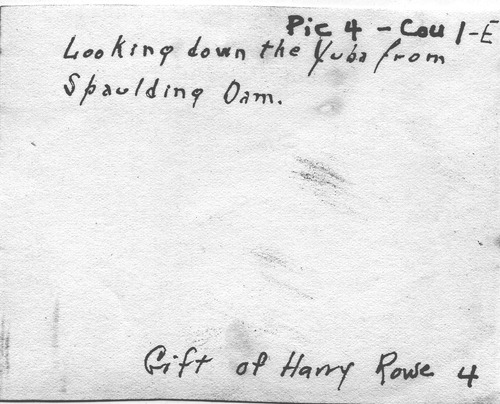 Pic 4 - Cou 1-E
Looking down the Yuba from
Spaulding Dam.
Gift of Harry Rowe 4